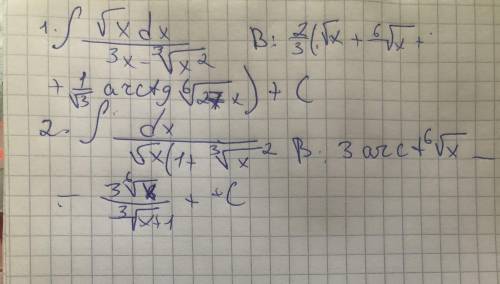 1. ∫ √x dx / (3x - ∛x²) B: 2/3 (√x + ⁶√x +
+ 1/√3 arctg ⁶√27 x) + C
2. ∫ dx / (√x (1 + ∛x ² B: 3 arct ⁶√x –
– 3 ⁶√x / (∛x + 1) + + C